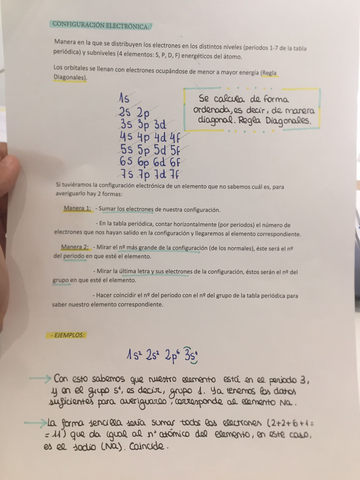 CONFIGURACIÓN ELECTRÓNICA:
Manera en la que se distribuyen los electrones en los distintos niveles (periodos 1-7 de la tabla
periódica) y subniveles (4 elementos: S, P, D, F) energéticos del átomo.
Los orbitales se llenan con electrones ocupándose de menor a mayor energía (Regla
Diagonales).
1s
2s 2p
3s 3p 3d
4s 4p 4d 4f
5s 5p 5d 5f
6s 6p 6d 6f
7s 7p 7d 7f
Se calcula de forma
ordenada, es decir, de manera
diagonal. Regla Diagonales.
Si tuviéramos la configuración electrónica de un elemento que no sabemos cuál es, para
averiguarlo hay 2 formas:
Manera 1: - Sumar los electrones de nuestra configuración.
- En la tabla periódica, contar horizontalmente (por periodos) el número de
electrones que nos hayan salido en la configuración y llegaremos al elemento correspondiente.
Manera 2: - Mirar el nº más grande de la configuración (de los normales), éste será el nº
del periodo en que esté el elemento.
- Mirar la última letra y sus electrones de la configuración, éstos serán el nº del
grupo en que esté el elemento.
- Hacer coincidir el nº del periodo con el nº del grupo de la tabla periódica para
saber nuestro elemento correspondiente.
- EJEMPLOS:
1s² 2s² 2p⁶ 3s¹
→ Con esto sabemos que nuestro elemento está en el periodo 3,
y en el grupo s¹, es decir, grupo 1. Ya tenemos los datos
suficientes para averiguarlo, corresponde al elemento Na.
→ La forma sencilla sería sumar todos los electrones (2+2+6+1=
= 11) que da igual al nº atómico del elemento, en este caso,
es el sodio (Na). Coincide.